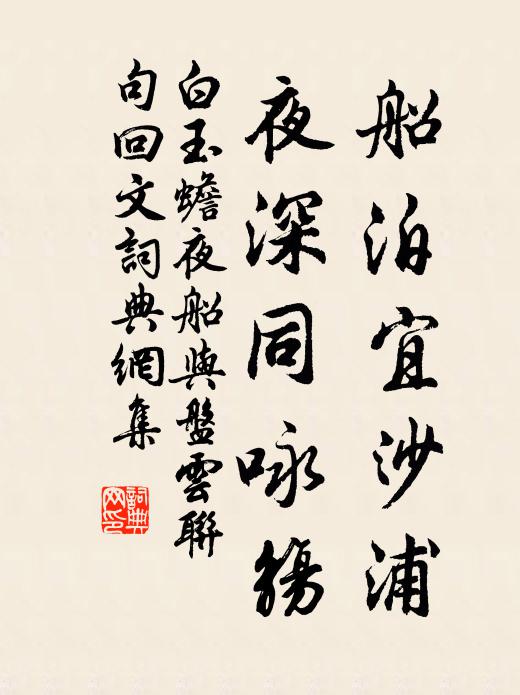 船泊宜沙浦
夜深同咏觴
白玉蟾夜船與盤雲聯
句回文詞典網集
詞典
网印